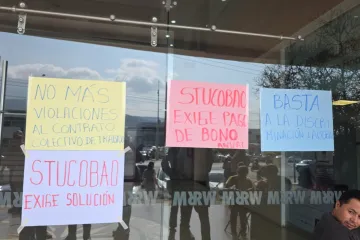 NO MÁS
VIOLACIONES
AL CONTRATO
COLECTIVO DE TRABAJO
STUCOBAO
EXIGE SOLUCIÓN
STUCOBAO
EXIGE PAGO
DE BONO
BASTA
A LA DISCRI
MINACIÓN LABORAL